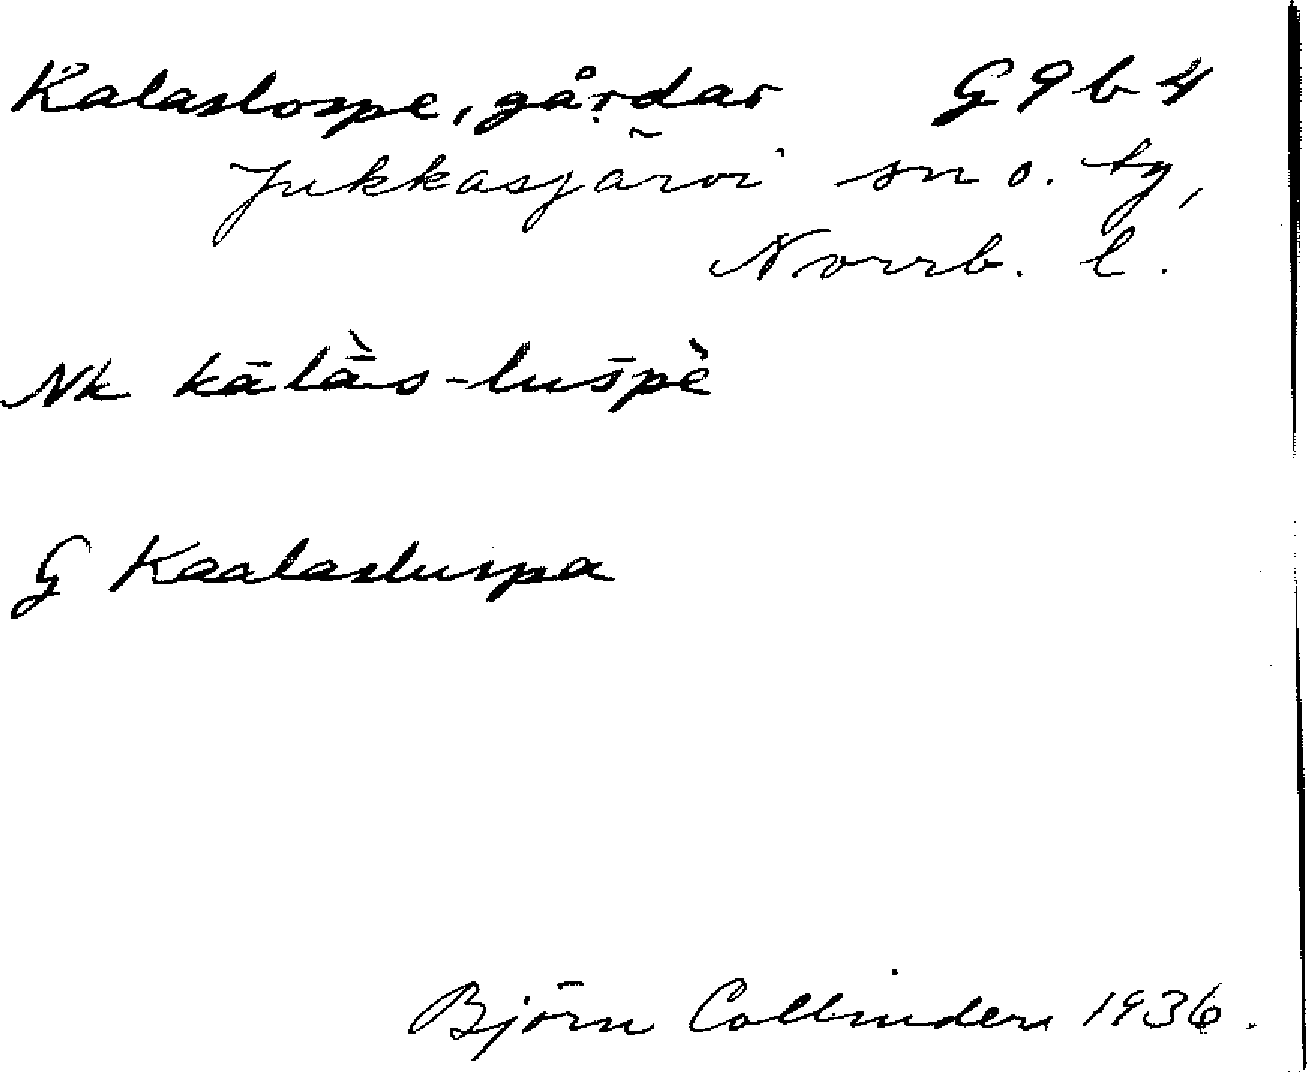 Kalaslospe, gårdar G9b4
Jukkasjärvi sn o. tg,
Norrb. l.
Nk kālā̀s-luṡ̄pè
G Kaalasluspa
Björn Collinder 1936.